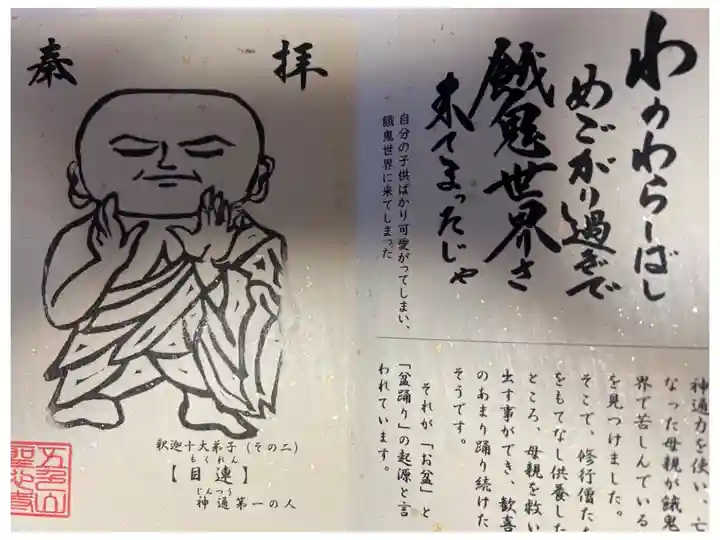 わのわらしばし
めごがり過ぎで
餓鬼世界さ
来てまったじゃ
自分の子供ばかり可愛がってしまい、
餓鬼世界に来てしまった
神通力を使い、亡
なった母親が餓鬼
界で苦しんでいる
を見つけました。
そこで、修行僧た
をもてなし供養した
ところ、母親を救い
出す事ができ、歓喜
のあまり踊り続けた
そうです。
それが「お盆」と
「盆踊り」の起源と言
われています。
奉拝
釈迦十大弟子(その二)
もくれん
【目連】
じんつう
神通第一の人